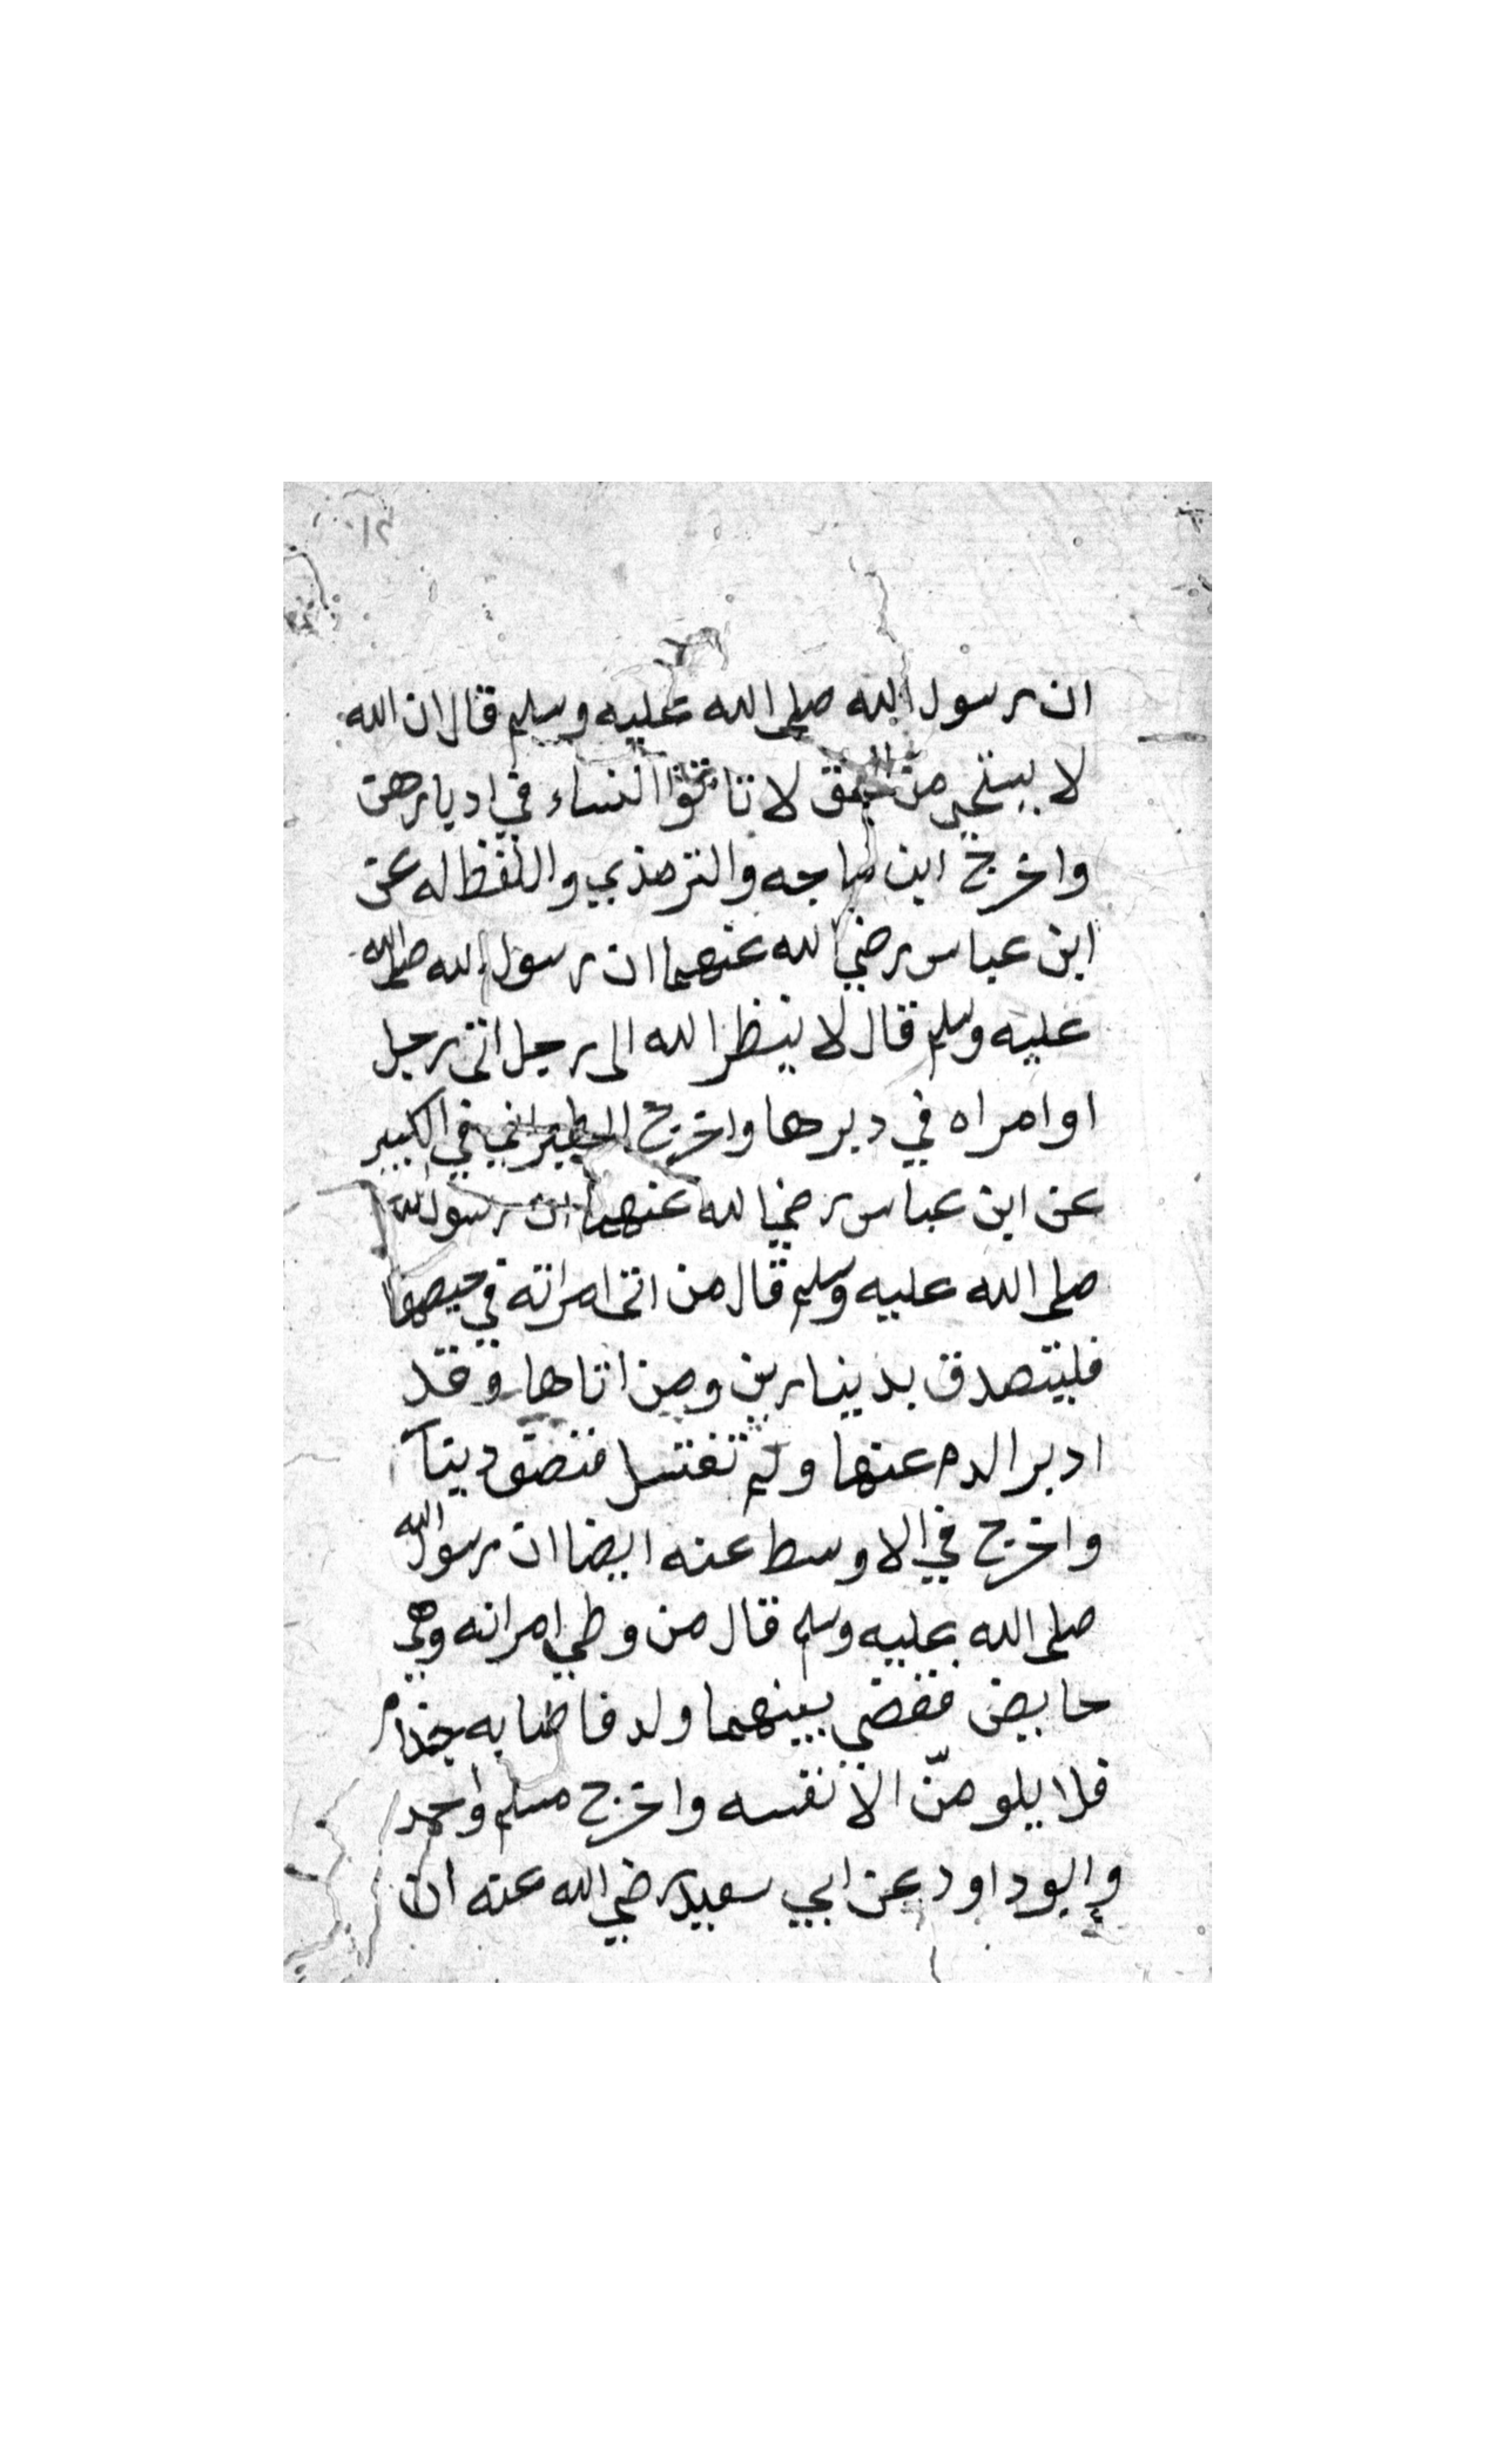 ان رسول الله صلى الله عليه وسلم قال ان الله
لا يستحي من الحق لا تاتوا النساء في ادبارهن
واخرج ابن ماجه والترمذي واللفظ له عن
ابن عباس رضي الله عنهما ان رسول الله صلى الله
عليه وسلم قال لا ينظر الله الى رجل اتى رجل
او امراه في دبرها واخرج الطبراني في الكبير
عن ابن عباس رضي الله عنهما ان رسول الله
صلى الله عليه وسلم قال من اتى امراته في حيضها
فليتصدق بدينارين ومن اتاها وقد
ادبر الدم عنها ولم تغتسل
واخرج في الاوسط عنه ايضا ان رسول الله
صلى الله عليه وسلم قال من وطي امراته وهي
حايض فقضي بينهما ولد فاصابه جذام
فلا يلومنّ الا نفسه واخرج مسلم واحمد
وابو داود عن ابي سعيد رضي الله عنه ان